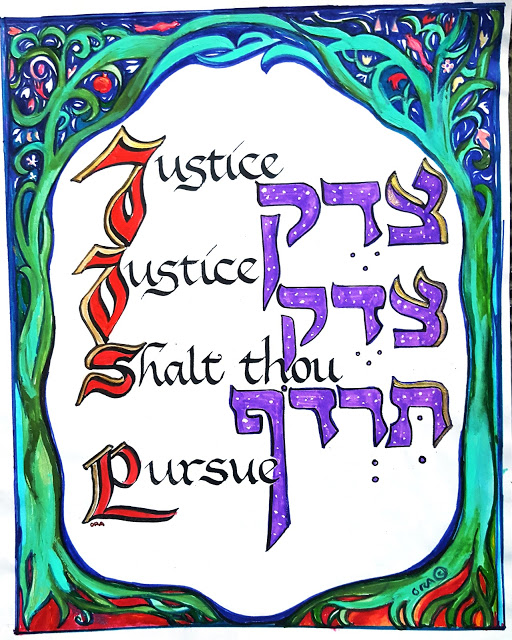 Justice
צדק
Justice
צדק
Shalt thou
תרדף
Pursue
ORA
ORA ©